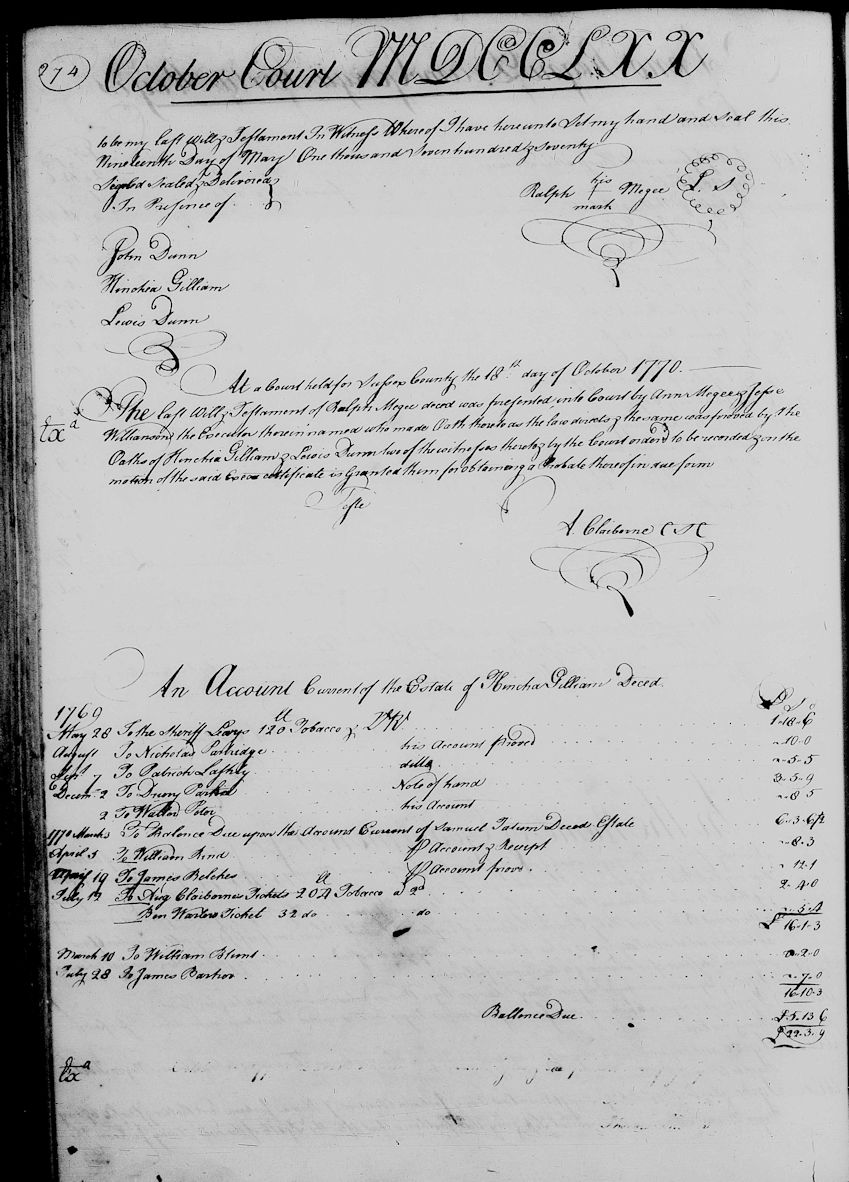 274
October Court MDCCLXX
to be my last Will & Testament In Witness Whereof I have hereunto Set my hand and Seal this
Nineteenth Day of May One thousand Seven hundred & Seventy
Signed Sealed & Delivered
In Presence of
his
Ralph Megee
mark
L. S
John Dunn
Hinchea Gilliam
Lewis Dunn
At a Court held for Sussex County the 18th. day of October 1770.
The last Will & Testament of Ralph Megee deced was presented into Court by Ann Megee & Jesse
Williamson the Executor therein named who made Oath thereto as the law directs & the same was proved by the
Oaths of Hinchia Gilliam & Lewis Dunn two of the witnesses thereto & by the Court orderd to be recorded & on the
motion of the said Exors certificate is Granted them for obtaining a Probate thereof in due form
Teste
A Claiborne C S C
Exa
An Account Current of the Estate of Hincha Gilliam Deced.
£ S D
1769
May 28 To the Sheriff Levys 120 Tobacco & 1-18-6
August To Nicholas Partridge his Account proved -10-0
Sept 7 To Patrick Lafhly ditto -5-5
Decem. 2 To Drury Parham Note of hand 3-5-9
2 To Walter Peter his Account -8 5
1770 March To Ballence Due upon the Account Current of Samuel Tatum Deced Estate 6-3-6½
April 5 To William Rind p Account & Receipt -8-3
April 19 To James Belches p Account prove -12-1
July 12 To Aug Claibornes Tickets 204 Tobacco a 2d 2-4-0
Ben Warlow Ticket 32 do do -5-4
£ 16-1-3
March 10 To William Blunt -2-0
July 28 To James Barker -7-0
16-10-3
Ballence Due £5-13 6
£22-3-9
Exa